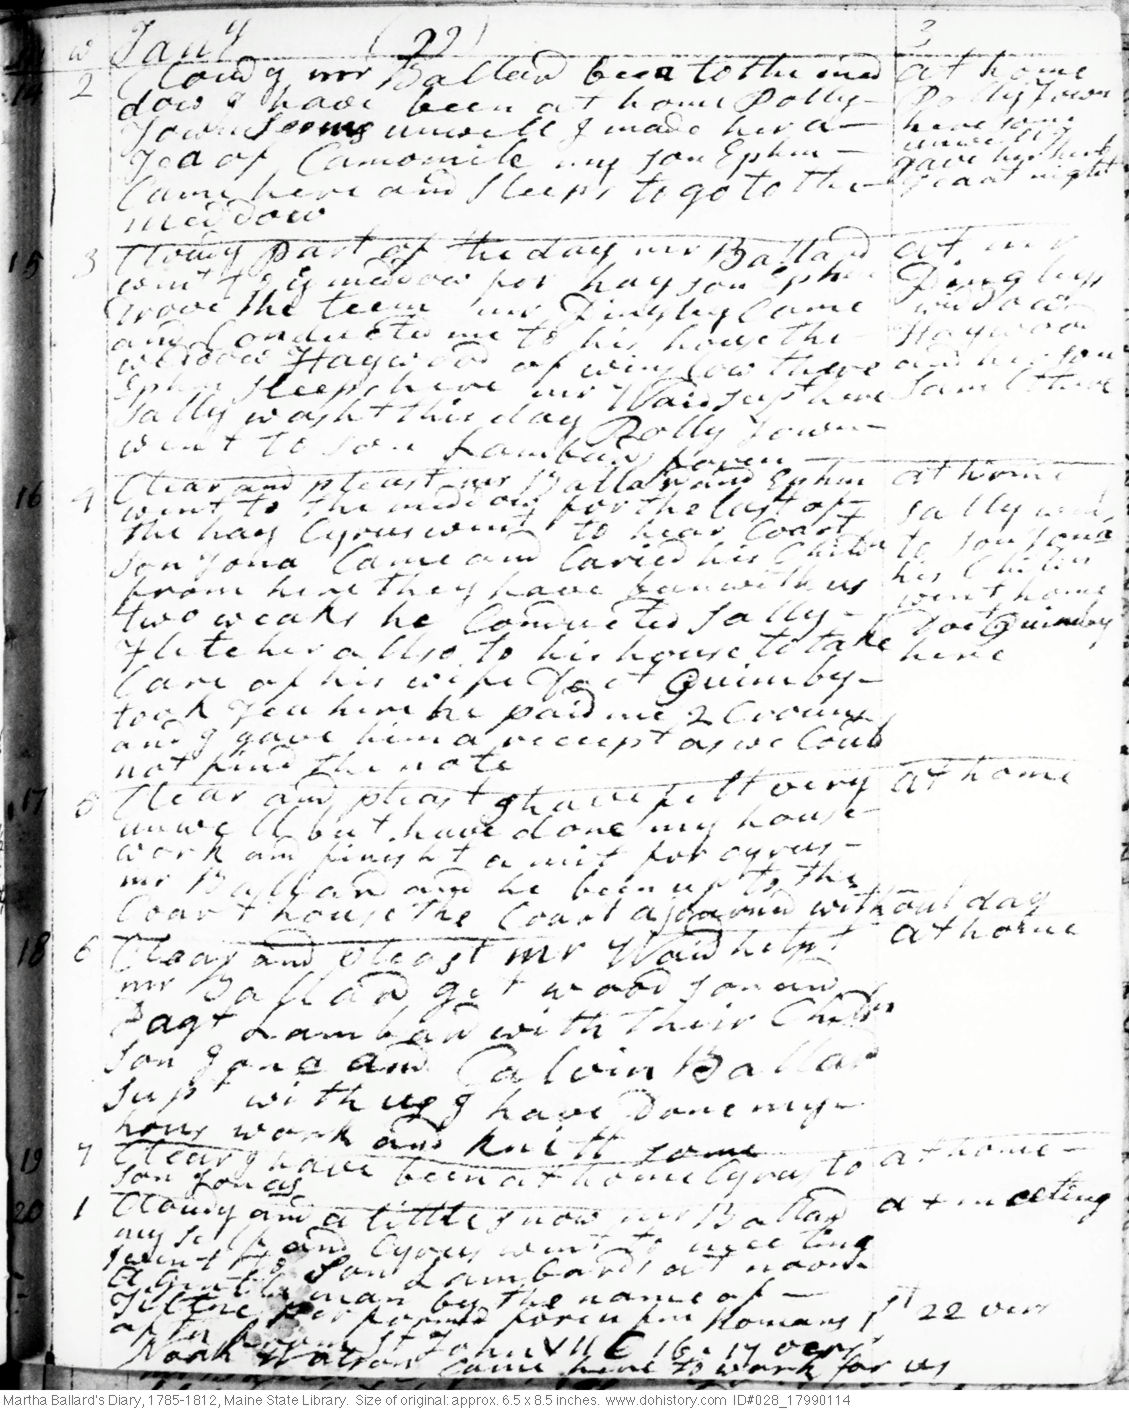 Jany (22) 3
14 2 Cloudy mr Ballard been to the med
dow I have been at home Polly
Town Seems unwell I made her a
Tea of Camomile my son Ephm
Came here and Sleeps to go to the
meddow
at home
Polly Town
here some
unwell I
gave her herb
Tea at night
15 3 Cloudy part of the day mr Ballard
went to meddow for hay son Ephm
Drove the teem mr Dingley Came
and Conducted me to his house the
widdow Haywood of winslow there
Ephm Sleeps here mr Waid supt here
Sally washt this day Polly Town
went to son Lambards
at mr
Dinglys
widdow
Haywood
and her son
Saml there
16 4 Clear and pleast mr Ballard and Ephm
went to the meddow for the last of
the hay Cyrus went to hear Coart
son Jona Came and Caried his Childn
from here they have been with us
two weaks he Conducted Sally
Fletcher allso to his house to take
Care of his wife Doct Quimby
took Tea here he paid me 2 Crowns
and I gave him a receept as we Could
not find the note
at home
Sally
to son Jona
his Childn
went home
Doct Quimby
here
17 5 Clear and pleast I have felt very
unwell but have done my house
work and finisht a mit for Cyrus
mr Ballard and he been up to the
Coart house the Coart ajoarnd without day
at home
18 6 Clear and pleast mr Waid helpt
mr Ballard get wood son and
Dagt Lambard with their Childn
son Jona and Calvin Ballard
supt with us I have done my
hous work and knitt some
at home
19 7 Clear I have been at home Cyrus to
son Jonas
at home
20 1 Cloudy and a little snow mr Ballard
my self and Cyrus went to meeting
I went to son Lambards at noon
A Gentleman by the name of
performed foren pm Romans 1st 22 vers
after noon St John VII C 16 - 17 vers
at meeting
came here to work for us
Martha Ballard's Diary, 1785-1812, Maine State Library. Size of original: approx. 6.5 x 8.5 inches. www.dohistory.com ID#028_17990114